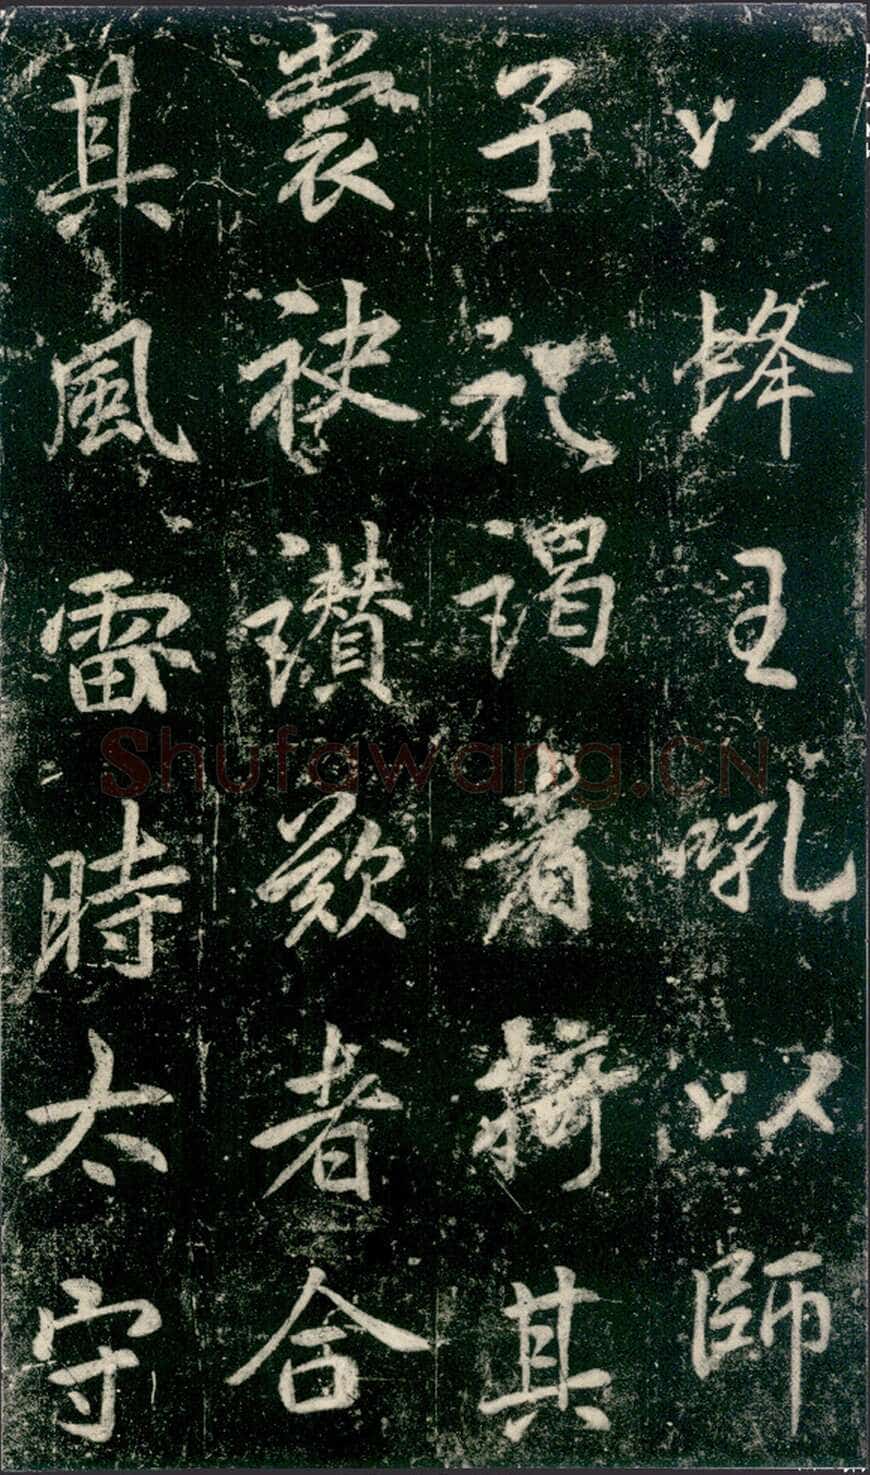 以蜂王吼以師
子礼謁者擠其
裳袂讚歎者合
其風雷時太守
Shufawang.CN